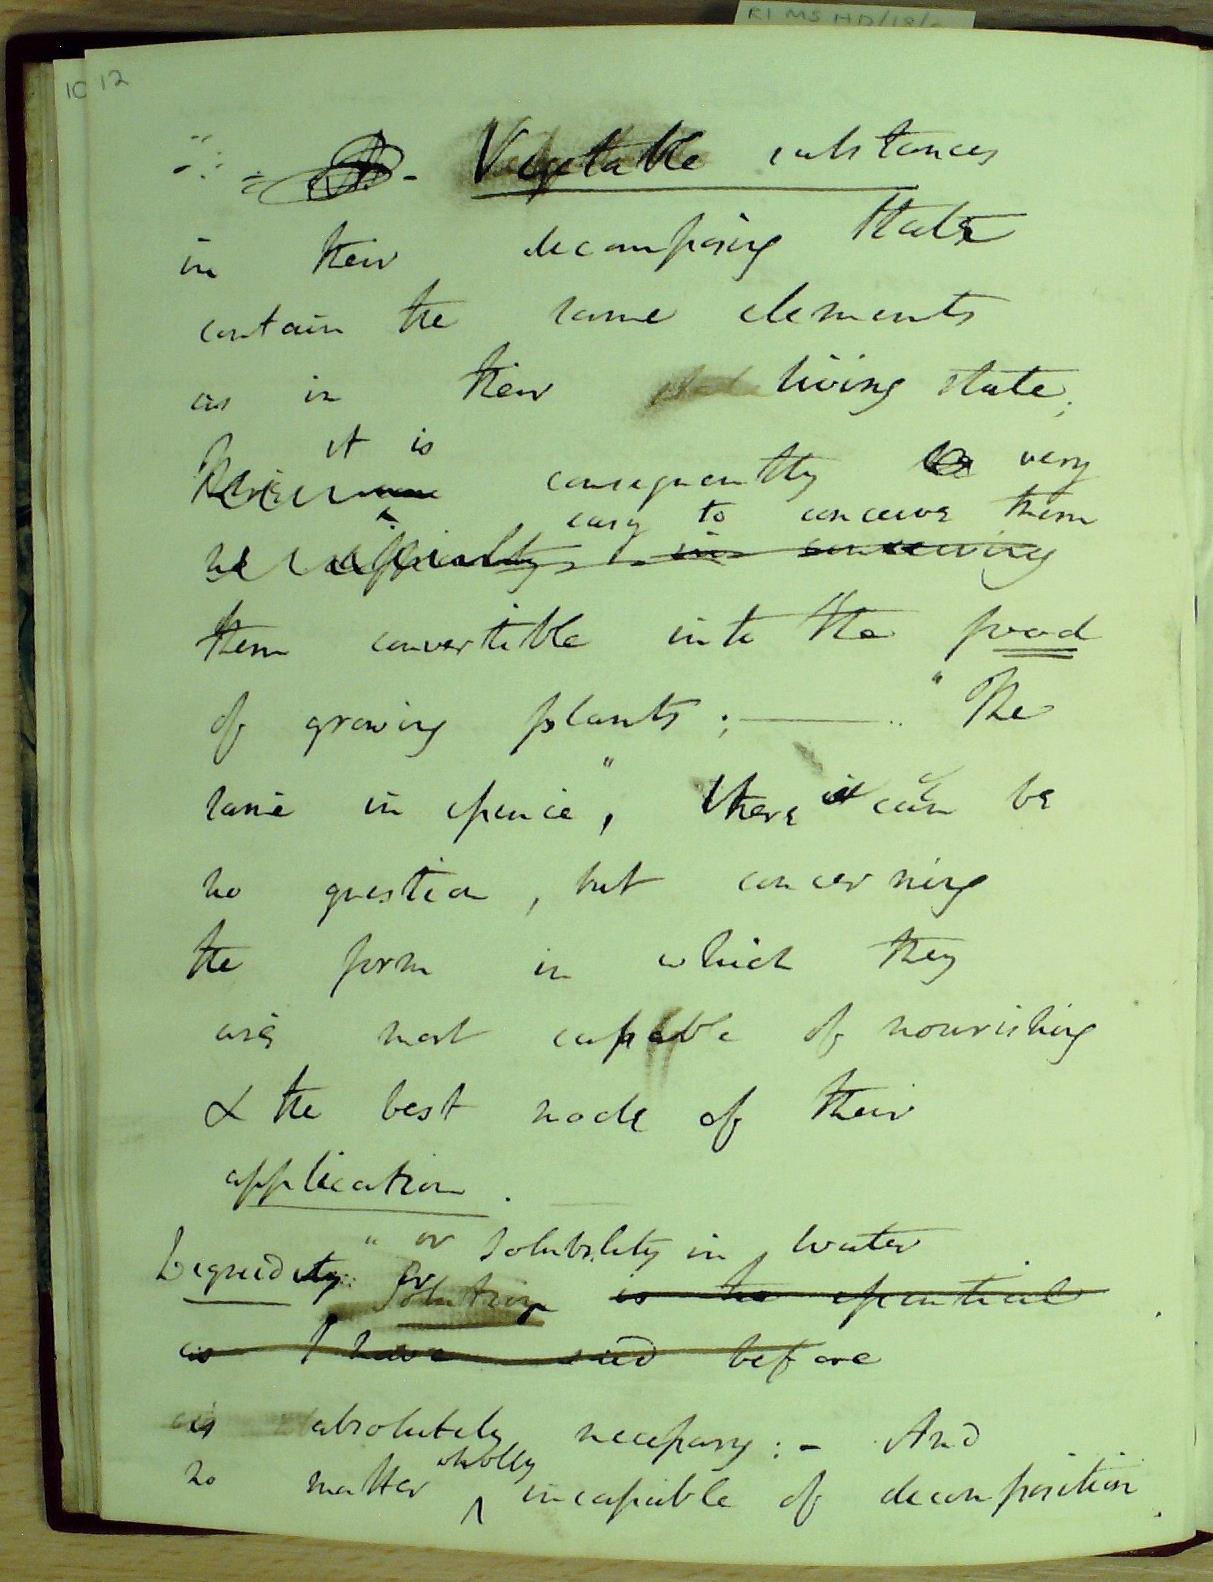 RI MS HD/18/
10 12
Vegetable substances
in their decomposing state
contain the same elements
as in their living state;
it is
consequently very
easy to conceive them
no difficulty in conceiving
them convertible into the food
of growing plants; — "The
same in specie", there can be
no question, but concerning
the form in which they
are most capable of nourishing
& the best mode of their
application.
" or solubility in water
Liquidity or Solution is the essential
as I have said before
is absolutely necessary: - And
wholly
no matter ^ incapable of decomposition